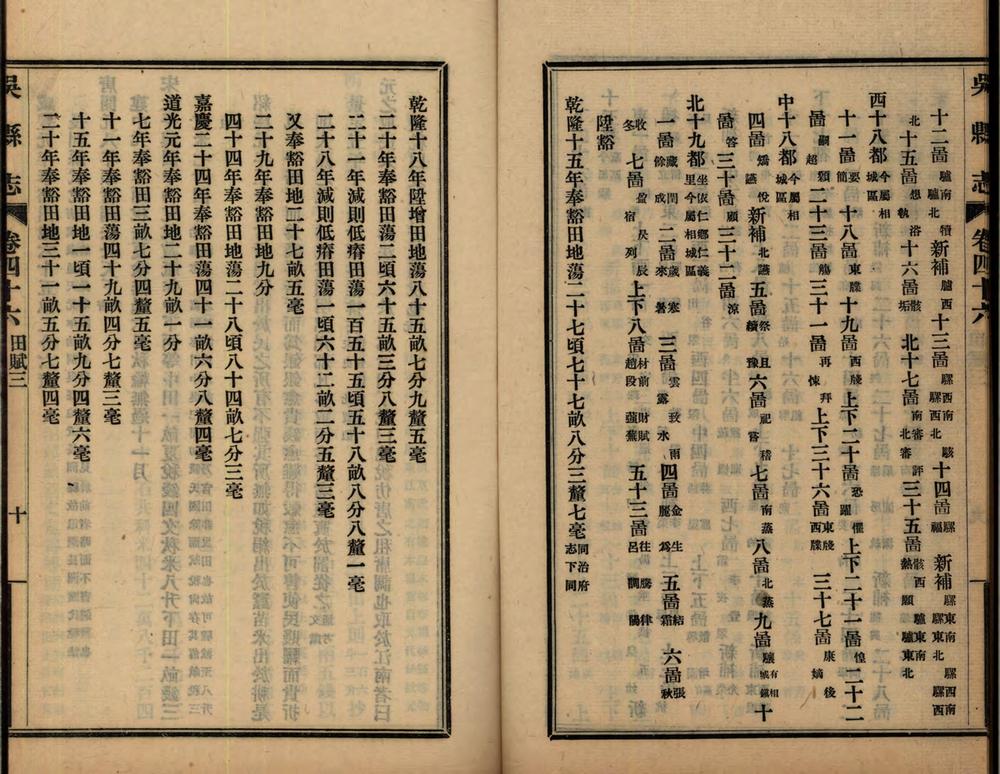 吳縣志 卷四十六
十二啚驢南驢北犢新補臚西十三啚騾西南騾西北駭十四啚騾福新補騾東南騾東北騾西南騾西
北想十五啚浴執十六啚骸垢北十七啚南審北審評三十五啚骸西熱願驢東南驢東北
西十八都今屬相城區
十一啚要簡十八啚東牒十九啚西牋上下二十啚恐躍懼上下二十一啚惶二十二
啚嗣超顙二十三啚觴三十一啚再悚拜上下三十六啚東牋西牒三十七啚康嫡後
中十八都今屬相城區
四啚矯讌悅新補北讌五啚祭續且豫六啚祀嘗稽七啚南蒸八啚北蒸九啚驤有相城鎮十
啚答三十啚顧三十二啚涼
北十九都坐依仁鄉仁義里今屬相城區
一啚藏餘閏成二啚歲來寒暑三啚雲露致水雨四啚金麗生爲五啚結霜六啚張秋
收冬七啚盈宿昃列辰上下八啚材前趙段財賦五十三啚往呂騰調律陽
陞豁
乾隆十五年奉豁田地蕩二十七頃七十七畝八分三釐七毫同治府志下同
乾隆十八年陞增田地蕩八十五畝七分九釐五毫
二十年奉豁田蕩二頃六十五畝三分八釐三毫
二十一年減則低瘠田蕩一百五十五頃五十八畝八分八釐一毫
二十八年減則低瘠田蕩一頃六十二畝二分五釐三毫
又奉豁田地二十七畝五毫
二十九年奉豁田地九分
四十四年奉豁田地蕩二十八頃八十四畝七分三毫
嘉慶二十四年奉豁田蕩四十一畝六分八釐四毫
道光元年奉豁田地二十九畝一分
七年奉豁田三畝七分四釐五毫
十一年奉豁田蕩四十九畝四分七釐三毫
十五年奉豁田地一頃一十五畝九分四釐六毫
二十年奉豁田地三十一畝五分七釐四毫
吳縣志 卷四十六 田賦三 十